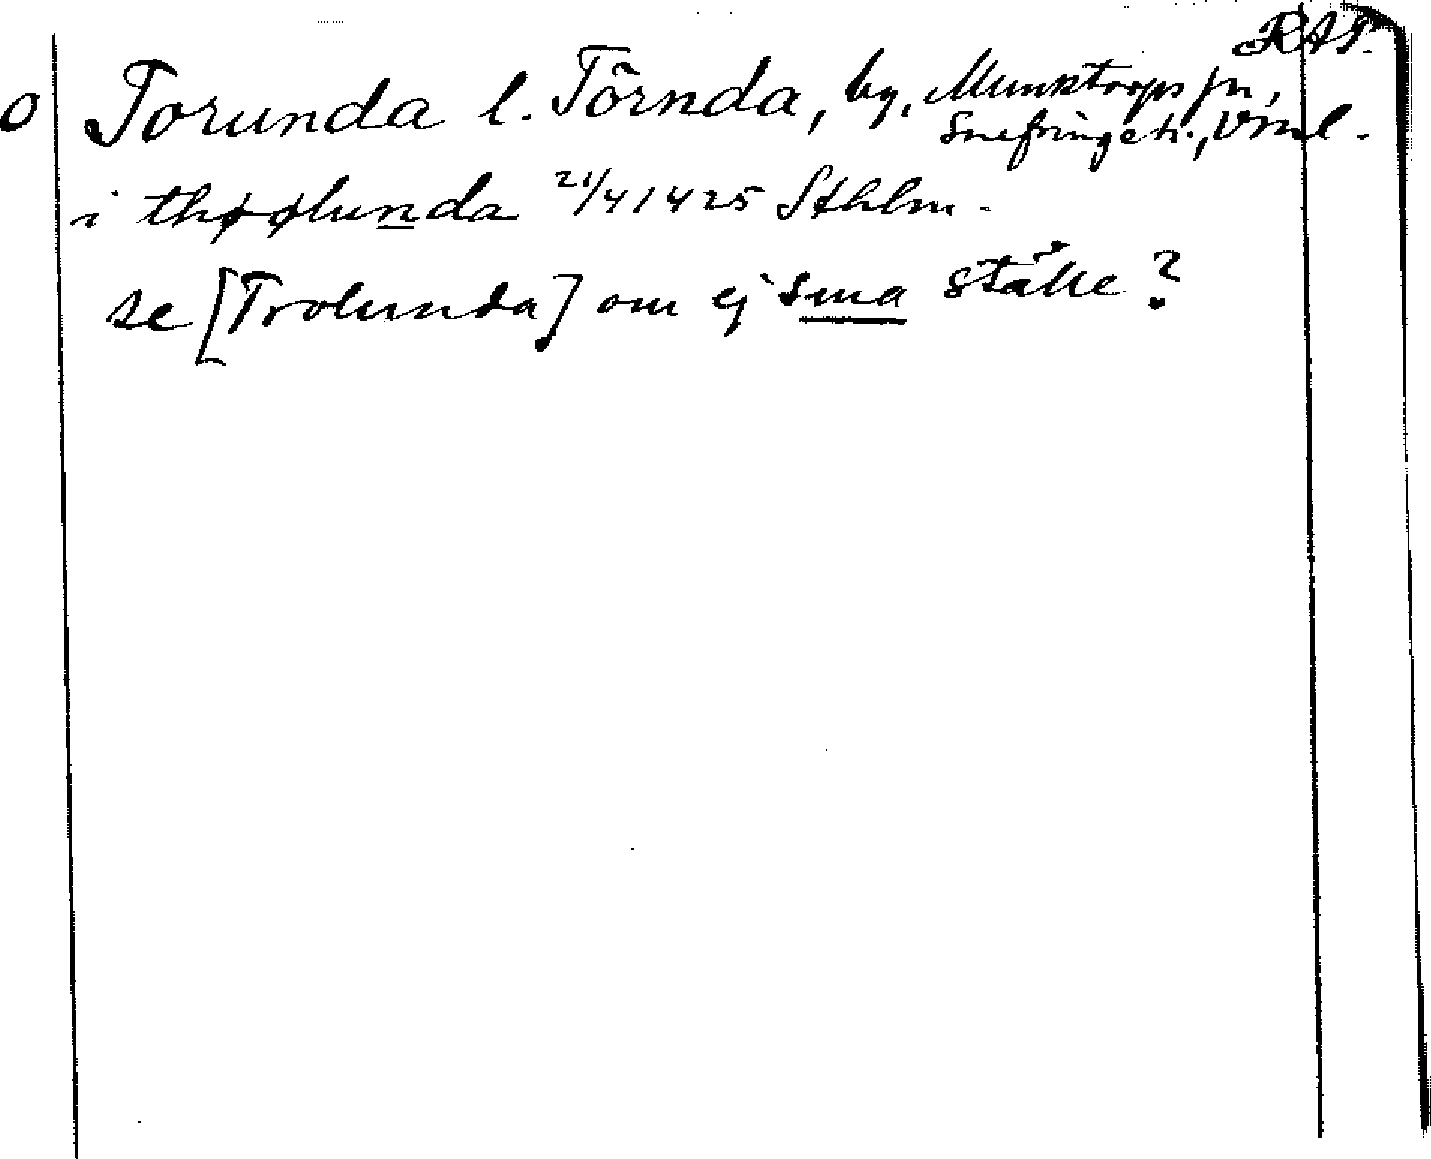 RAP.
o Torunda l. Törnda, by, Munktorps sn,
Snefringe h., Vml.
i thørølunda 21/4 1425 Sthlm.
se [Trolunda] om ej sma ställe?